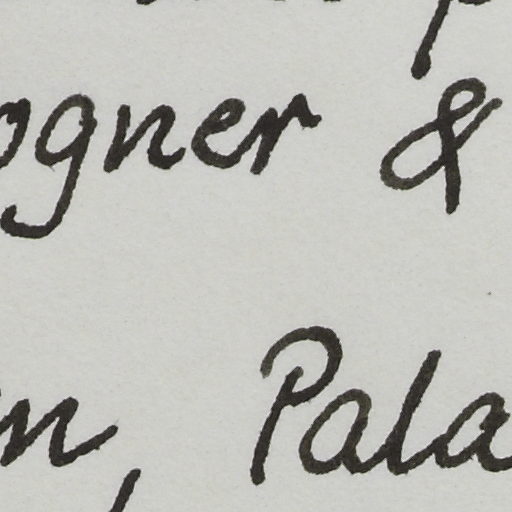 ogner &
n, Pala